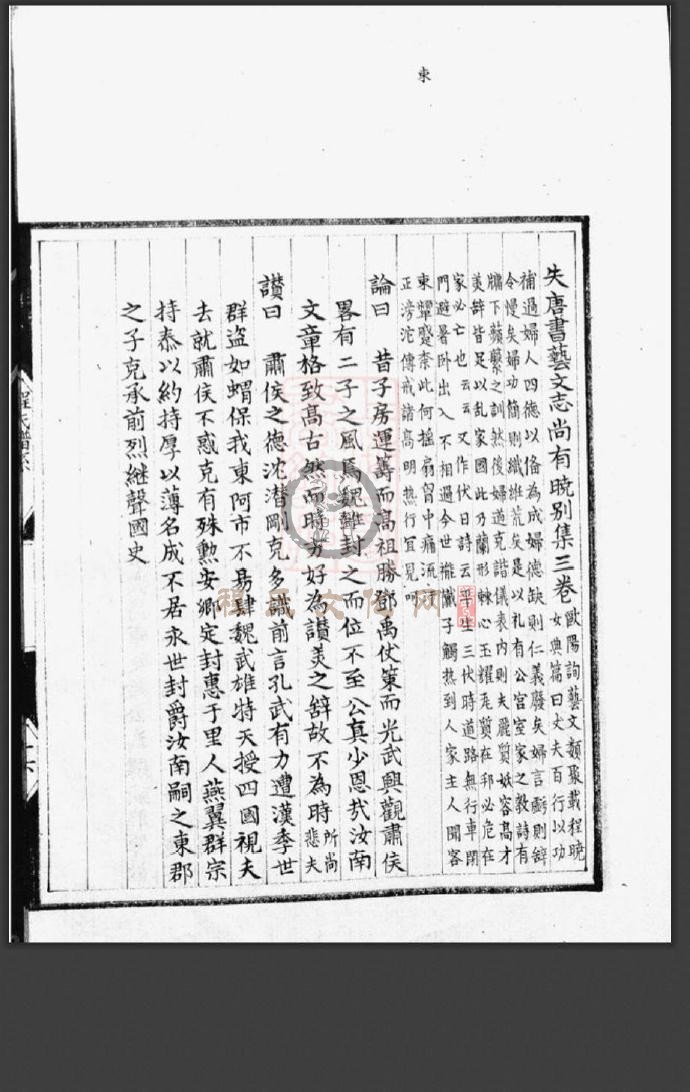 東
失唐書藝文志尚有曉別集三卷
歐陽詢藝文類聚載程曉
女典篇曰丈夫百行以功
補過婦人四德以俻為成婦德缺則仁義廢矣婦言虧則辞
令慢矣婦功簡則織維荒矣是以礼有公宮室家之教詩有
牖下蘋蘩之訓然後婦道克諧儀表内則夫麗質妖容髙才
美辞皆足以乱家國此乃蘭形棘心玉耀瓦質在邦必危在
家必亡也云云又作伏日詩云平生三伏時道路無行車閉
門避暑卧出入不相過今世襶子觸热到人家主人聞客
東顰蹙柰此何搖扇中痛流汗
正滂沱傳戒諸髙明热行冝見呵
論曰 昔子房運籌而髙祖勝鄧禹仗策而光武興觀肅侯
畧有二子之風焉魏雖封之而位不至公真少恩㢤汝南
文章格致髙古然而時方好為讚美之辞故不為時所尚悲夫
讃曰 肅侯之德沈潜剛克多識前言孔武有力遭漢季世
群盗如蝟保我東阿市不易肆魏武雄特天授四國視夫
去就肅侯不惑克有殊勲安卿定封惠于里人燕翼群宗
持泰以約持厚以薄名成不居永世封爵汝南嗣之東郡
之子克承前烈継聲國史
程氏譜宗
程氏文化网